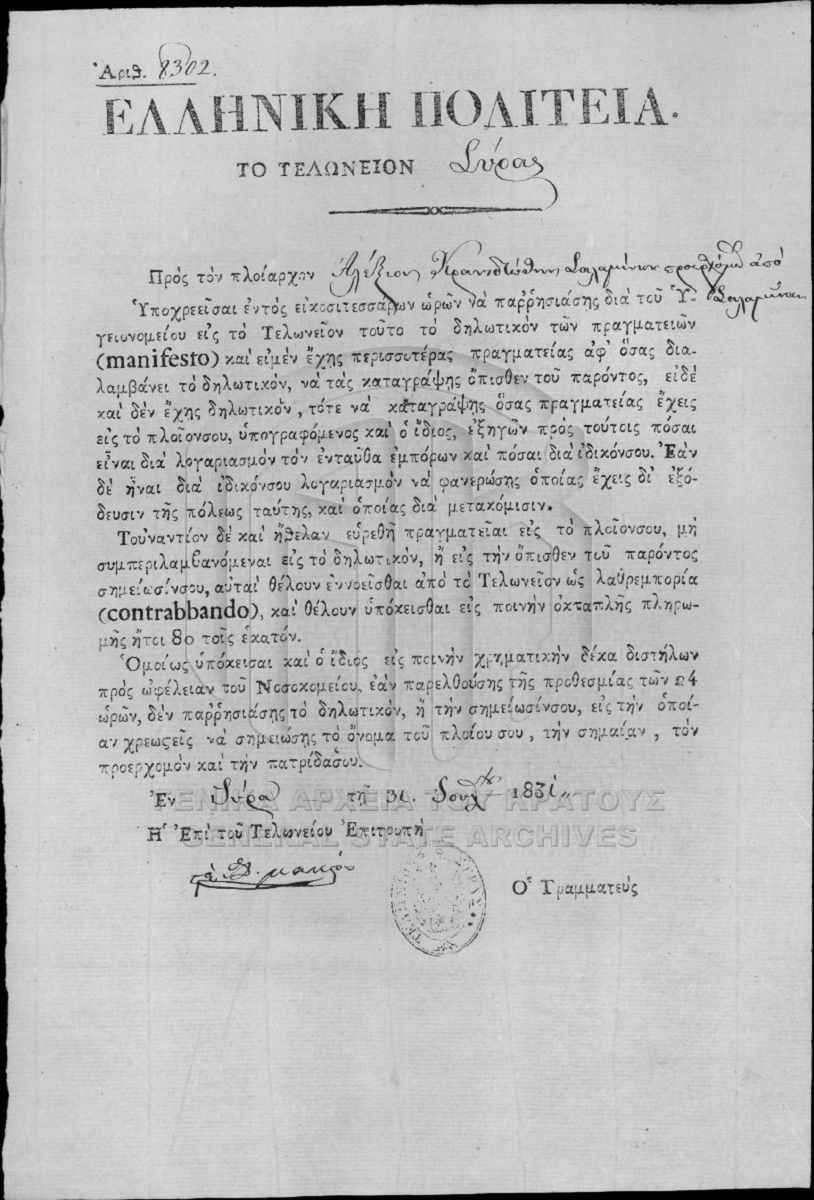 Ἀριθ. 8302.
ΕΛΛΗΝΙΚΗ ΠΟΛΙΤΕΙΑ.
ΤΟ ΤΕΛΩΝΕΙΟΝ Σύρας
Πρὸς τὸν πλοίαρχον Ἀλέξιον Σαλαμίνιον προερχόμ ἀπὸ
Σαλαμῖναν
Ὑποχρεεῖσαι ἐντὸς εἰκοσιτεσσάρων ὡρῶν νὰ παῤῥησιάσῃς διὰ τοῦ Ὑ-
γειονομείου εἰς τὸ Τελωνεῖον τοῦτο τὸ δηλωτικὸν τῶν πραγματειῶν
(manifesto) καὶ εἰμὲν ἔχῃς περισσοτέρας πραγματείας ἀφ' ὅσας δια-
λαμβάνει τὸ δηλωτικὸν, νὰ τὰς καταγράψῃς ὄπισθεν τοῦ παρόντος, εἰδὲ
καὶ δὲν ἔχῃς δηλωτικὸν, τότε νὰ καταγράψῃς ὅσας πραγματείας ἔχεις
εἰς τὸ πλοῖονσου, ὑπογραφόμενος καὶ ὁ ἴδιος, ἐξηγῶν πρὸς τούτοις πόσαι
εἶναι διὰ λογαριασμὸν τὸν ἐνταῦθα ἐμπόρων καὶ πόσαι διὰ ἰδικόνσου. Ἐὰν
δὲ ἦναι διὰ ἰδικόνσου λογαριασμὸν νὰ φανερώσῃς ὁποίας ἔχεις δι' ἐξό-
δευσιν τῆς πόλεως ταύτης, καὶ ὁποίας διὰ μετακόμισιν.
Τοὐναντίον δὲ καὶ ἤθελαν εὑρεθῆ πραγματεῖαι εἰς τὸ πλοῖονσου, μὴ
συμπεριλαμβανόμεναι εἰς τὸ δηλωτικὸν, ἢ εἰς τὴν ὄπισθεν τοῦ παρόντος
σημείωσίνσου, αὐταὶ θέλουν ἐννοεῖσθαι ἀπὸ τὸ Τελωνεῖον ὡς λαθρεμπορία
(contrabbando), καὶ θέλουν ὑπόκεισθαι εἰς ποινὴν ὀκταπλῆς πληρω-
μῆς ἤτοι 80 τοῖς ἑκατόν.
Ὁμοίως ὑπόκεισαι καὶ ὁ ἴδιος εἰς ποινὴν χρηματικὴν δέκα διστήλων
πρὸς ὠφέλειαν τοῦ Νοσοκομείου, ἐὰν παρελθούσης τῆς προθεσμίας τῶν 24
ὡρῶν, δὲν παῤῥησιάσῃς τὸ δηλωτικὸν, ἢ τὴν σημείωσίνσου, εἰς τὴν ὁποί-
αν χρεωςεῖς νὰ σημειώσῃς τὸ ὄνομα τοῦ πλοίου σου, τὴν σημαίαν, τὸν
προερχομὸν καὶ τὴν πατρίδασου.
Ἐν Σύρᾳ τῇ 31. Ἰουλ 1831
Ἡ Ἐπὶ τοῦ Τελωνείου Ἐπιτροπὴ
Ὁ Γραμματεύς
ΓΕΝΙΚΑ ΑΡΧΕΙΑ ΤΟΥ ΚΡΑΤΟΥΣ
GENERAL STATE ARCHIVES